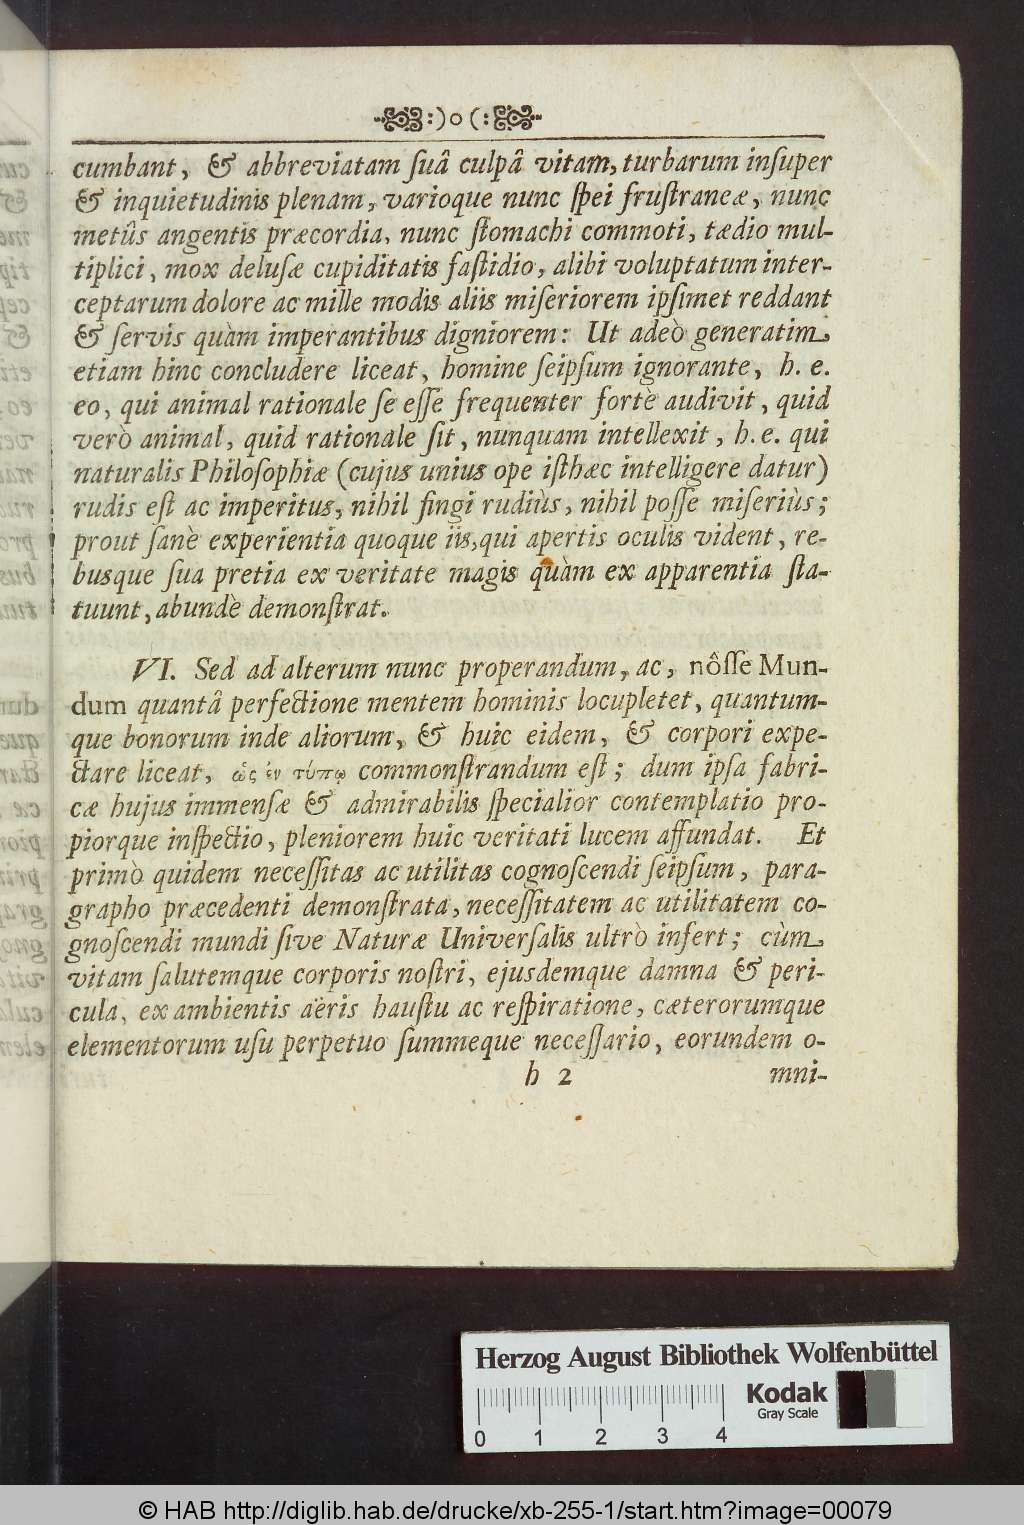 :)o(:
cumbant, & abbreviatam ſuâ culpâ vitam, turbarum inſuper
& inquietudinis plenam, varioque nunc ſpei fruſtraneæ, nunc
metûs angentis præcordia, nunc ſtomachi commoti, tædio mul-
tiplici, mox deluſæ cupiditatis faſtidio, alibi voluptatum inter-
ceptarum dolore ac mille modis aliis miſeriorem ipſimet reddant
& ſervis quàm imperantibus digniorem: Ut adeò generatim
etiam hinc concludere liceat, homine ſeipſum ignorante, h. e.
eo, qui animal rationale ſe eſſe frequenter fortè audivit, quid
verò animal, quid rationale ſit, nunquam intellexit, h. e. qui
naturalis Philoſophiæ (cujus unius ope iſthæc intelligere datur)
rudis eſt ac imperitus, nihil fingi rudiùs, nihil poſſe miſeriùs;
prout ſanè experientia quoque iis, qui apertis oculis vident, re-
busque ſua pretia ex veritate magis quàm ex apparentia ſta-
tuunt, abundè demonſtrat.
VI. Sed ad alterum nunc properandum, ac, nôſſe Mun-
dum quantâ perfectione mentem hominis locupletet, quantum-
que bonorum inde aliorum, & huic eidem, & corpori expe-
ctare liceat, ὡς ἐν τύπῳ commonſtrandum eſt; dum ipſa fabri-
cæ hujus immenſæ & admirabilis ſpecialior contemplatio pro-
piorque inſpectio, pleniorem huic veritati lucem affundat. Et
primò quidem neceſſitas ac utilitas cognoſcendi ſeipſum, para-
grapho præcedenti demonſtrata, neceſſitatem ac utilitatem co-
gnoſcendi mundi ſive Naturæ Univerſalis ultrò infert; cùm
vitam ſalutemque corporis noſtri, ejusdemque damna & peri-
cula, ex ambientis aëris hauſtu ac reſpiratione, cæterorumque
elementorum uſu perpetuo ſummeque neceſſario, eorundem o-
h 2 mni-
Herzog August Bibliothek Wolfenbüttel
Kodak
Gray Scale
0 1 2 3 4
© HAB http://diglib.hab.de/drucke/xb-255-1/start.htm?image=00079